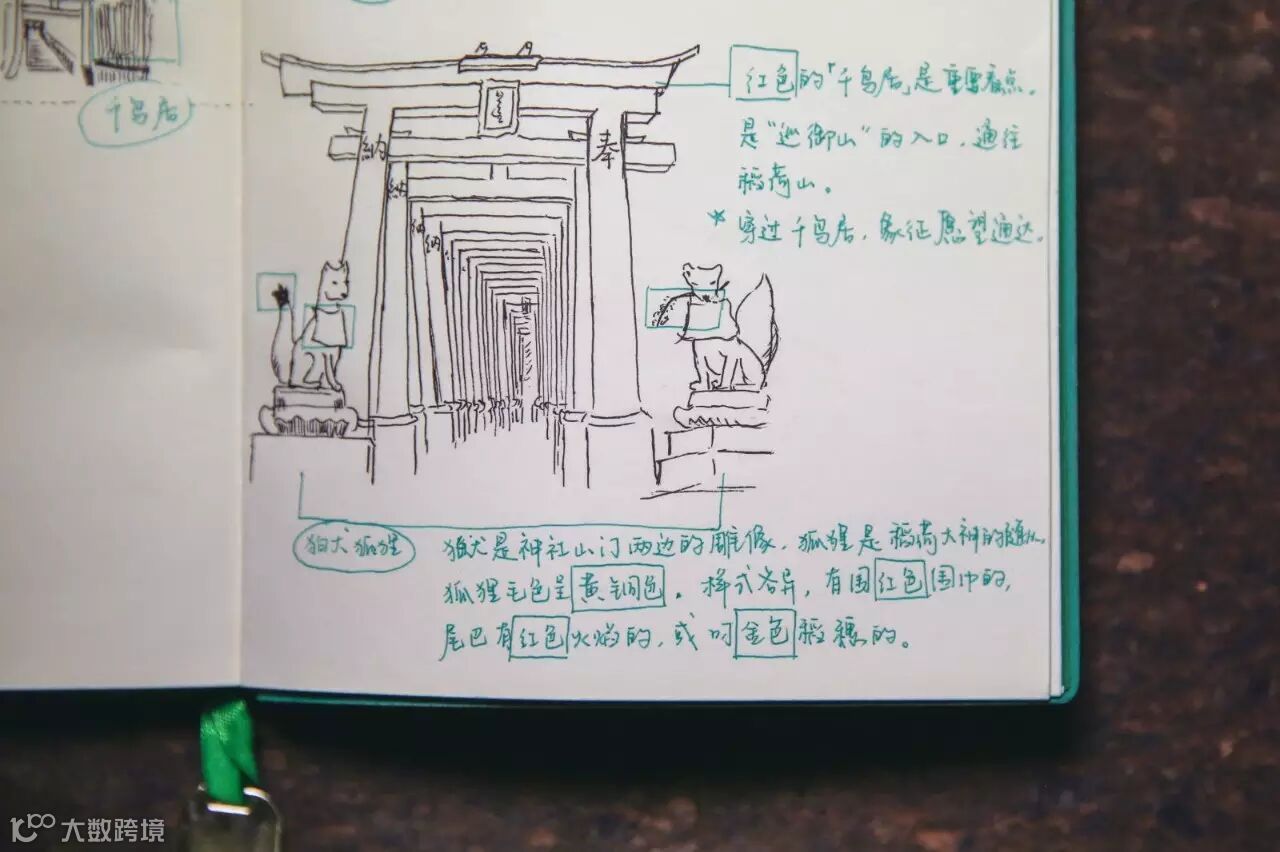 千鸟居
红色的「千鸟居」是重要看点。
是"巡御山"的入口，通往
稻荷山。
*穿过千鸟居，象征愿望通达。
納
奉
納
納
納
狛犬狐狸
狛犬是神社山门两边的雕像，狐狸是稻荷大神的随从。
狐狸毛色呈黄铜色。样式各异，有围红色围巾的，
尾巴有红色火焰的，或叼金色稻穗的。
大数跨境